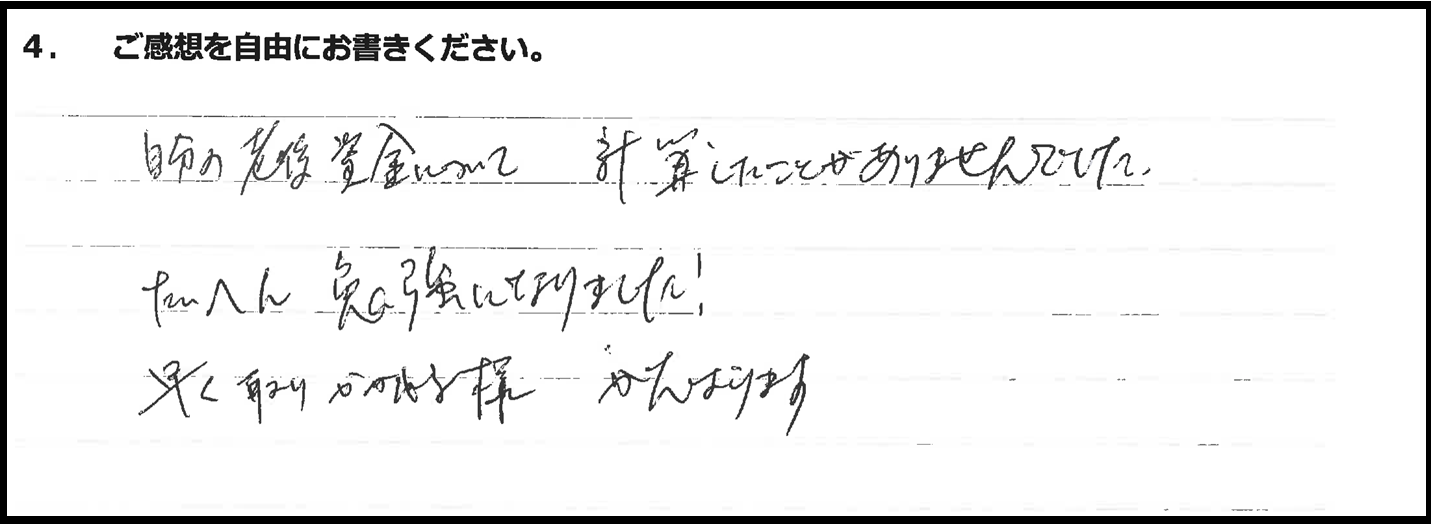 4. ご感想を自由にお書きください。
自分の老後資金について 計算したことがありませんでした。
たいへん 勉強になりました!
早く取りかかれる様 がんばります